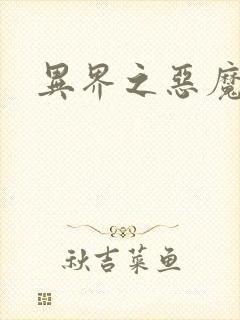 異界之惡魔
秋吉菜鱼